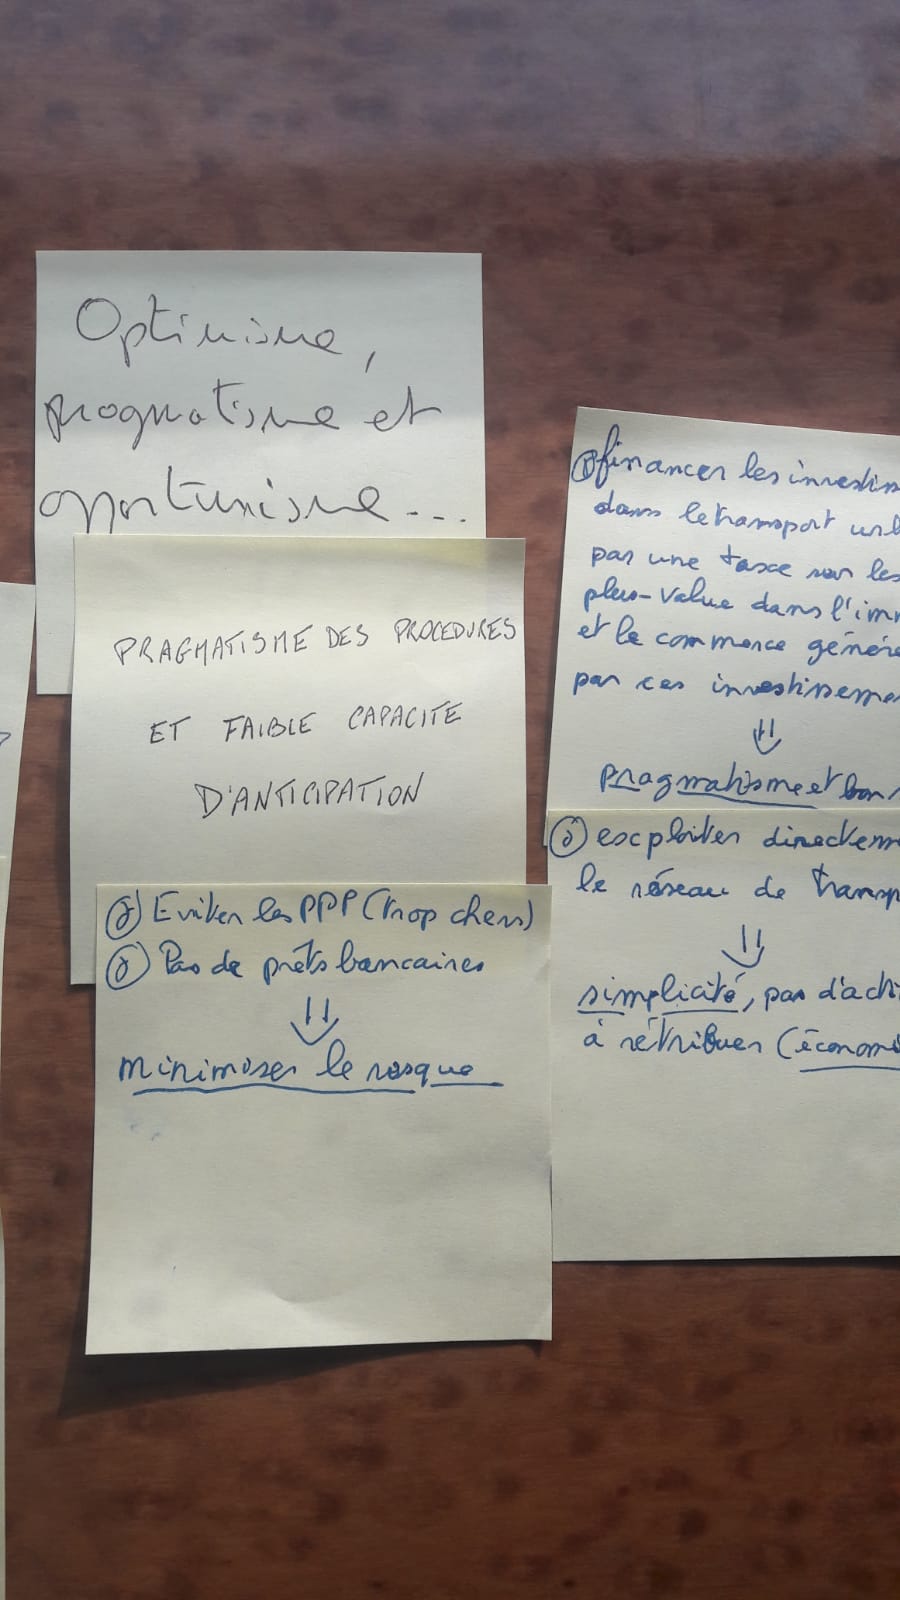 Optimisme,
pragmatisme et
opportunisme...
PRAGMATISME DES PROCEDURES
ET FAIBLE CAPACITE
D'ANTICIPATION
Eviter les PPP (trop chers)
Pas de prêts bancaires
⇓
minimiser le risque
financer les investiss
dans le transport urb
par une taxe sur les
plus-value dans l'imm
et le commerce génér
par ces investissemen
⇓
pragmatisme et bon
exploiter directem
le réseau de transp
⇓
simplicité, pas d'acti
à rétribuer (économi